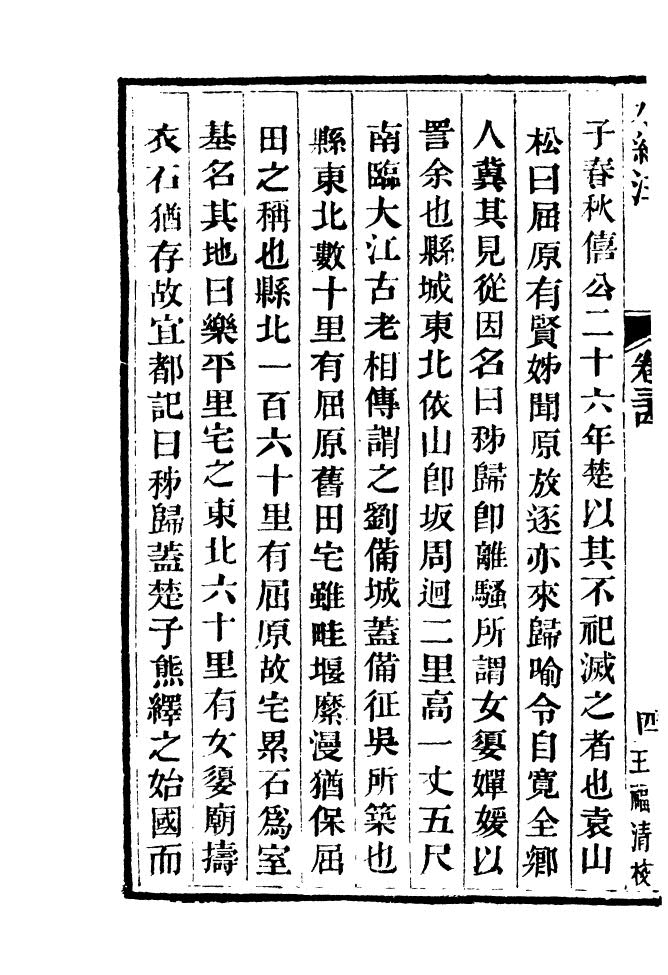 經注 卷三十四 四 王福清校
子春秋僖公二十六年楚以其不祀滅之者也袁山
松曰屈原有賢姊聞原放逐亦來歸喻令自寬全鄉
人冀其見從因名曰秭歸卽離騷所謂女嬃嬋媛以
詈余也縣城東北依山卽坂周迴二里高一丈五尺
南臨大江古老相傳謂之劉備城蓋備征吳所築也
縣東北數十里有屈原舊田宅雖畦堰縻漫猶保屈
田之稱也縣北一百六十里有屈原故宅累石爲室
基名其地曰樂平里宅之東北六十里有女嬃廟擣
衣石猶存故宜都記曰秭歸蓋楚子熊繹之始國而